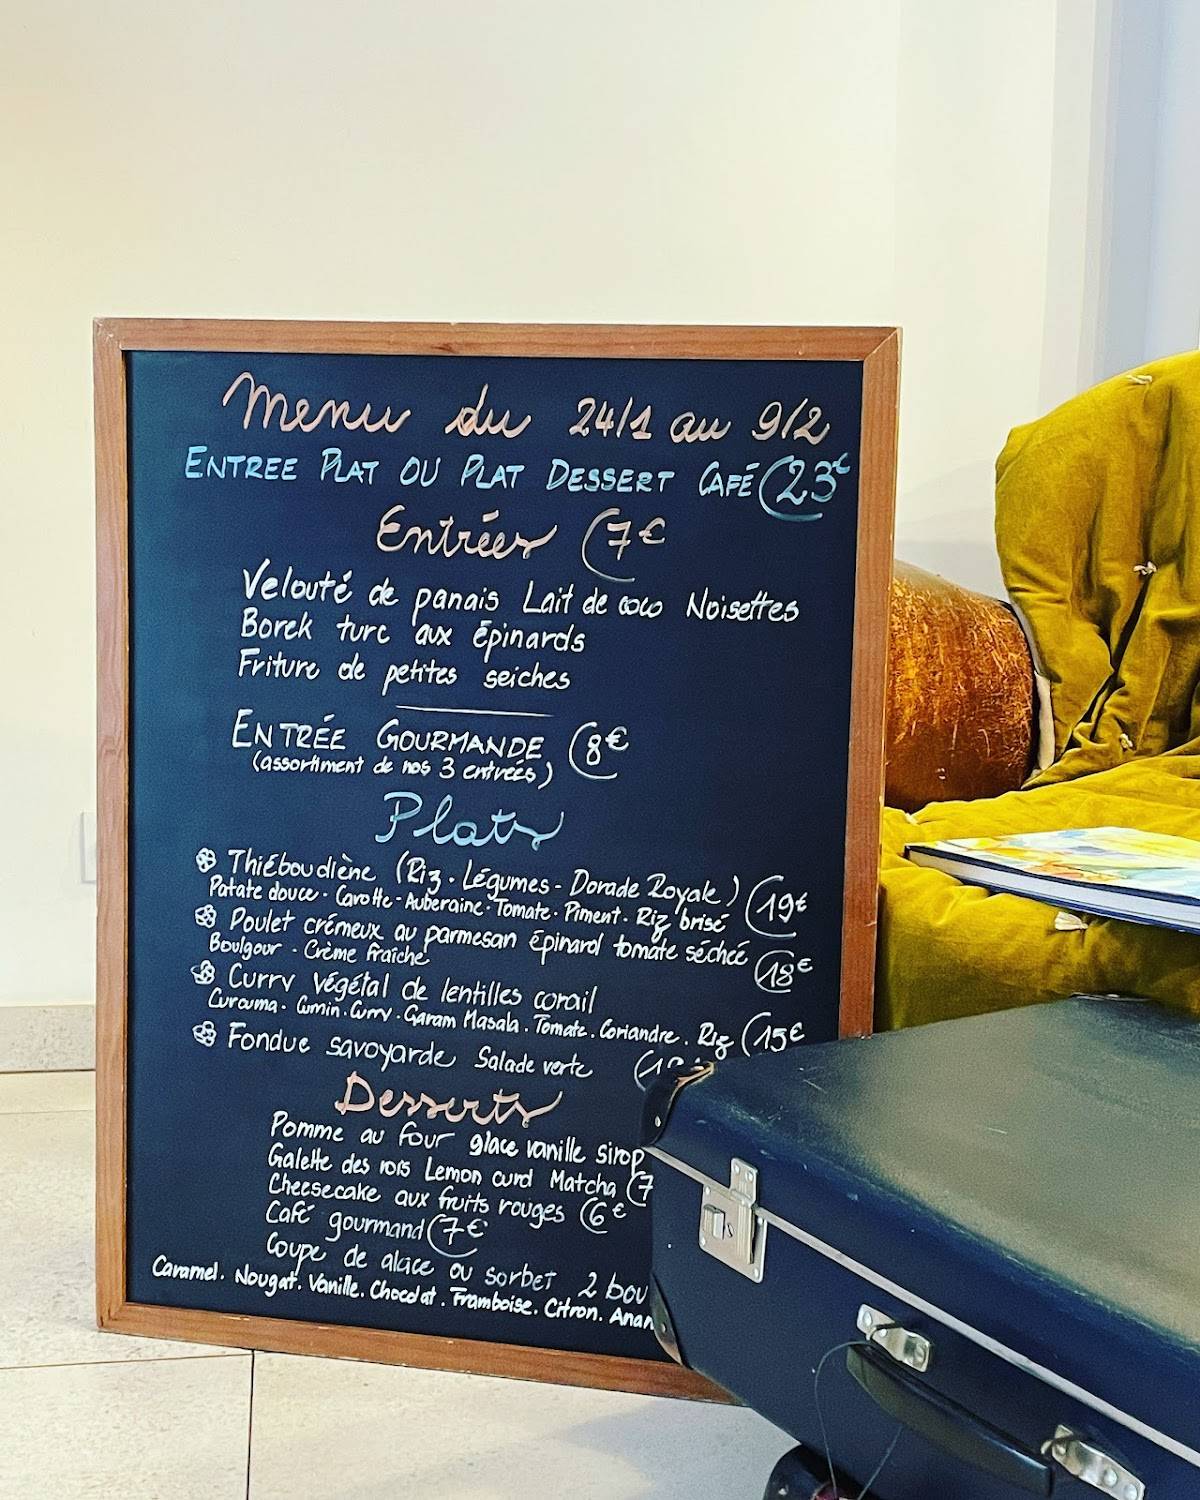 Menu du 24/1 au 9/2
ENTREE PLAT OU PLAT DESSERT CAFÉ 23€
Entrées 7€
Velouté de panais Lait de coco Noisettes
Borek turc aux épinards
Friture de petites seiches
ENTRÉE GOURMANDE 8€
(assortiment de nos 3 entrées)
Plats
Thiéboudiène (Riz. Légumes - Dorade Royale) 19€
Patate douce. Carotte - Auberaine. Tomate. Piment. Riz brisé
Poulet crémeux au parmesan épinard tomate séchée
Boulgour - Crème fraîche 18€
Curry végétal de lentilles corail
Curcuma. Cumin. Curry. Garam Masala. Tomate. Coriandre. Riz 15€
Fondue savoyarde Salade verte
Desserts
Pomme au four glace vanille sirop
Galette des rois Lemon curd Matcha (7
Cheesecake aux fruits rouges 6€
Café gourmand 7€
Coupe de glace ou sorbet 2 bou
Caramel. Nougat. Vanille. Chocolat. Framboise. Citron. Anan